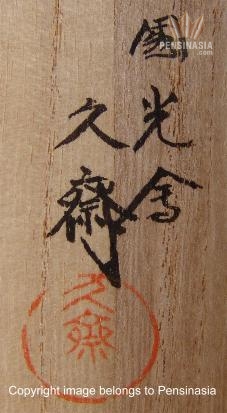 PENSINASIA
.COM
國光會
久齋
久齋
Copyright image belongs to Pensinasia